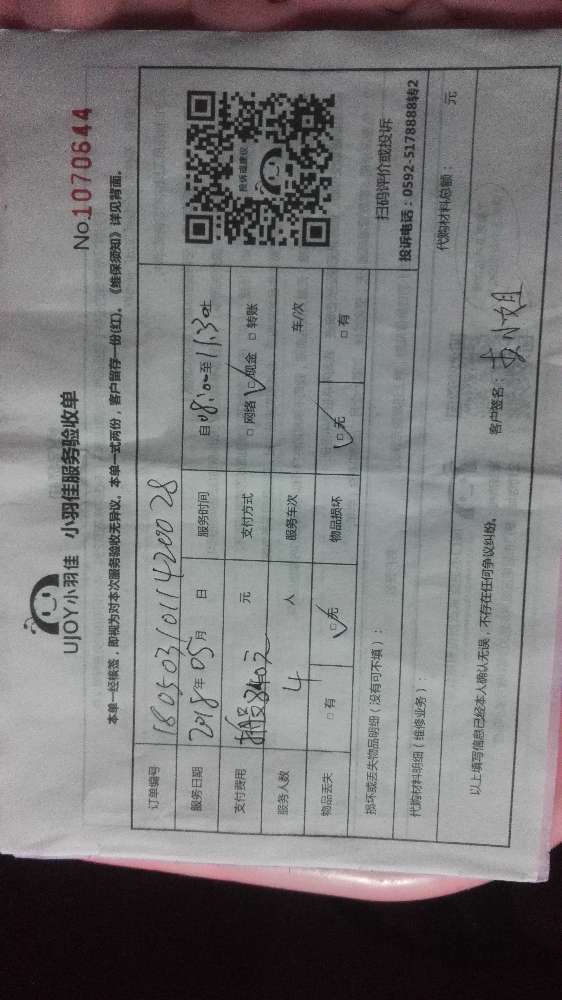 UJOY小羽佳 小羽佳服务验收单
No.1070644
本单一经核签，即视为对本次服务验收无异议。本单一式两份，客户留存一份(红)。《维保须知》详见背面。
订单编号 18050310114200028
服务日期 2018年05月 日 服务时间 自08:00至11:30止
支付费用 840元 元 支付方式 □网络 □现金 □转账
服务人数 4 人 服务车次 车/次
物品丢失 □有 □无 物品损坏 □无 □有
投诉或建议
扫码评价或投诉
投诉电话：0592-5178888转2
损坏或丢失物品明细（没有可不填）：
代购材料明细（维修业务）：
代购材料总额： 元
以上填写信息已经本人确认无误，不存在任何争议纠纷。
客户签名： 小姐